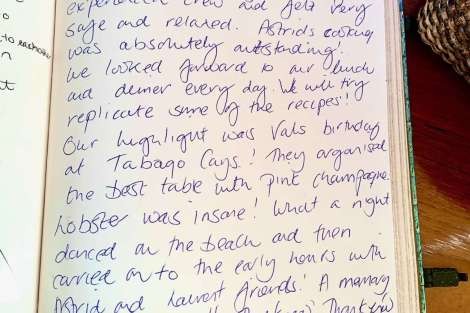 to eachother
t
experienced crew and felt very
safe and relaxed. Astrids cooking
was absolutely outstanding!
We looked forward to our lunch
and dinner every day. We will try
replicate some of the recipes!
Our highlight was Vals birthday
at Tabago Cays! They organised
the best table with pink champagne
Lobster was insane! What a night
danced on the beach and then
carried on to the early hours with
Astrid and Laurent friends! A memory
Thank you